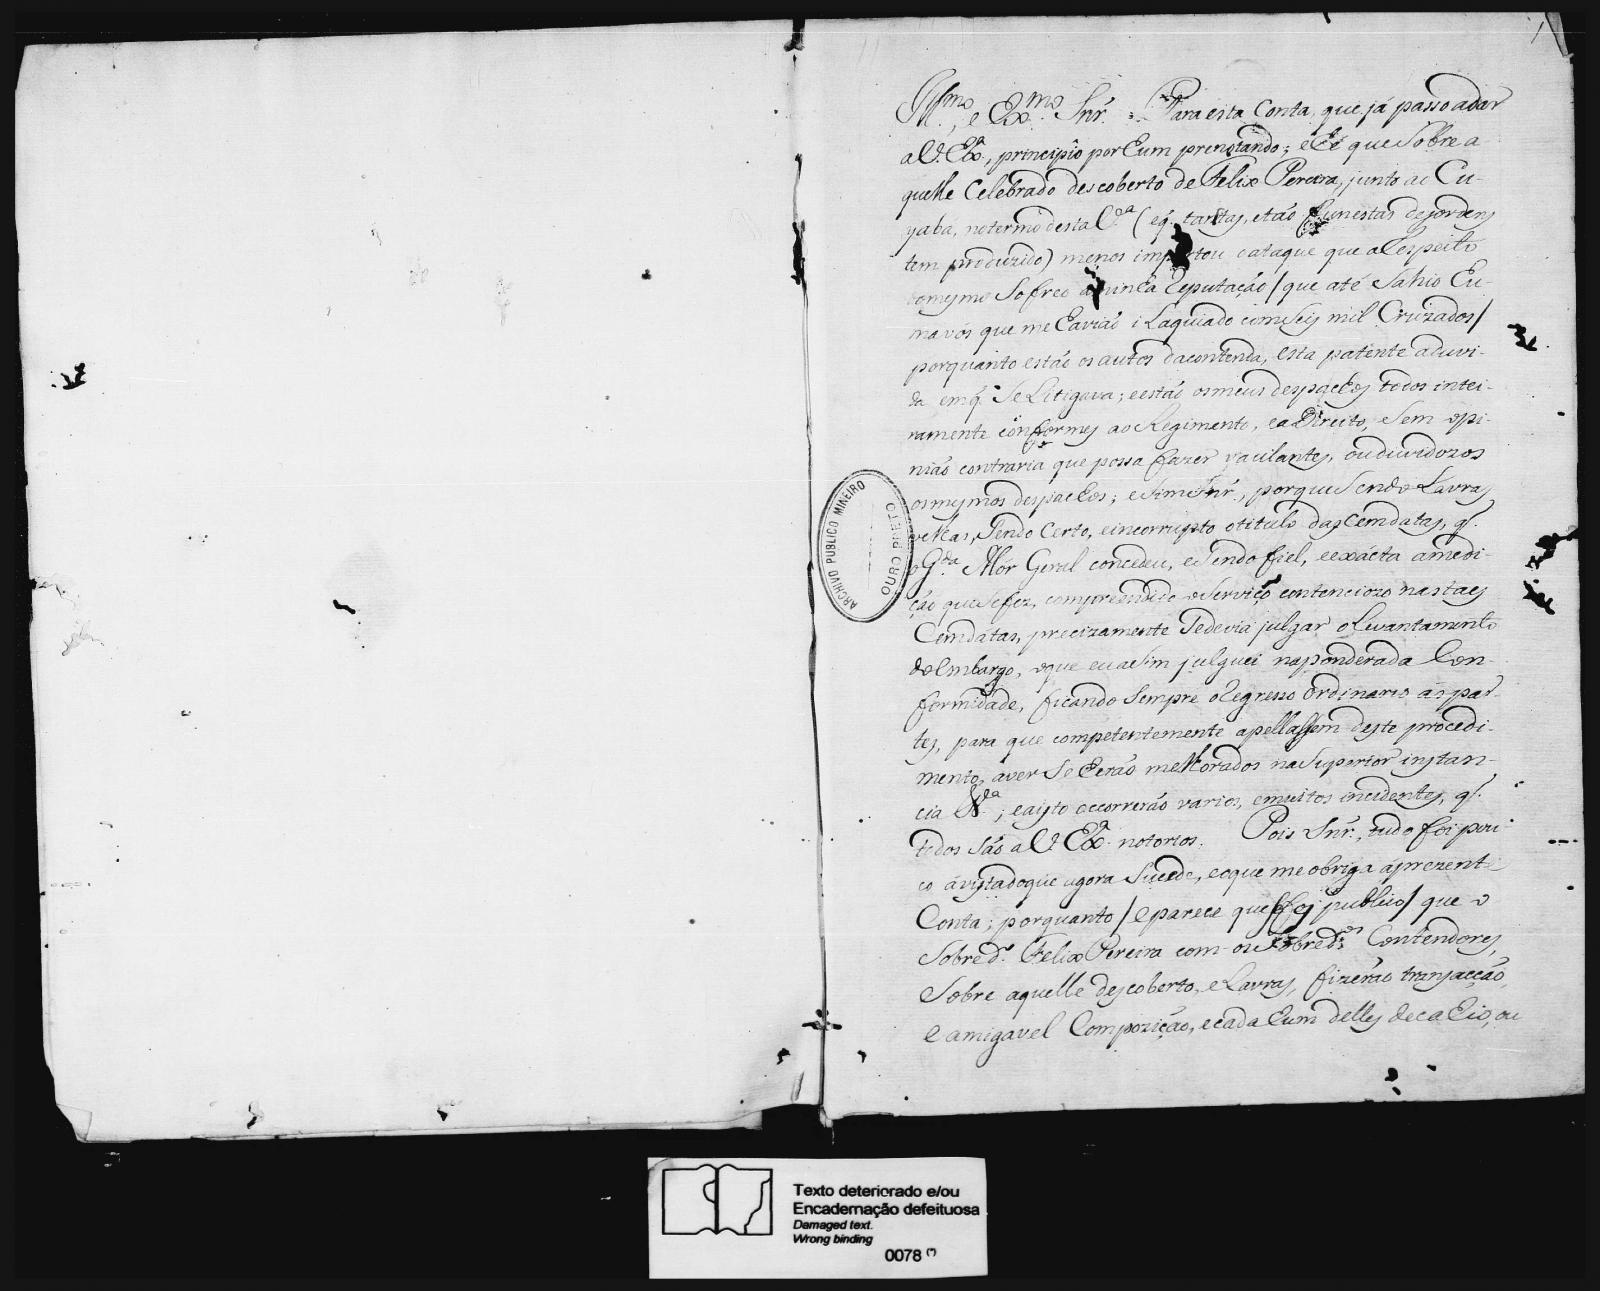 Ill.mo, e Ex.mo Snr. Para esta Conta, que já passo a dar
a V. Ex.a, principio por hum prenotando; e hé que Sobre a-
quelle Celebrado descoberto de Felix Pereira, junto ao Cu-
yabá, no termo desta V.a (e q. tantas, e tão funestas desordens
tem produzido) menos importou o ataque que a Respeito
do mesmo Sofreo a minha Reputação / que até Sahio hu-
ma vós que me havião com Seis mil Cruzados /
porquanto estão os autos da contenda, esta patente a duvi-
da em q. Se Litigava; e estão os meus despachos todos intei-
ramente conformes ao Regimento, e a Direito, Sem opi-
nião contraria que possa fazer vacilantes, ou duvidozos
os mesmos despachos; e Sim Snr., porque Sendo Lavras
velhas, Sendo Certo, e incorrupto o titulo das Cem datas, q.
o G.da Mór Geral concedeu, e Sendo fiel, e exácta a medi-
ção que Se fez, comprehendido o Serviço contenciozo nas taes
Cem datas, precizamente Se devia julgar o Levantamento
do Embargo, o que eu asim julguei na ponderada Con-
formidade, ficando Sempre o Regresso Ordinario ás par-
tes, para que competentemente apellassem deste procedi-
mento, a ver Se herão melhorados na Superior instan-
cia ; e a isto occorrerão varios, e muitos incidentes, q.
todos São a V. Ex.a notorios. Pois Snr., tudo foi pou-
co á vista do que agora Sucede, e o que me obriga á prezente
Conta; porquanto / e parece que hé já publico / que o
Sobred.o Felix Pereira com os Sobred.os Contendores,
Sobre aquelle descoberto, e Lavras, fizerão transacção,
e amigavel Compozição, e cada hum delles decahio, ou
ARCHIVO PUBLICO MINEIRO
OURO PRETO
Texto deteriorado e/ou
Encadernação defeituosa
Damaged text.
Wrong binding
0078 (*)